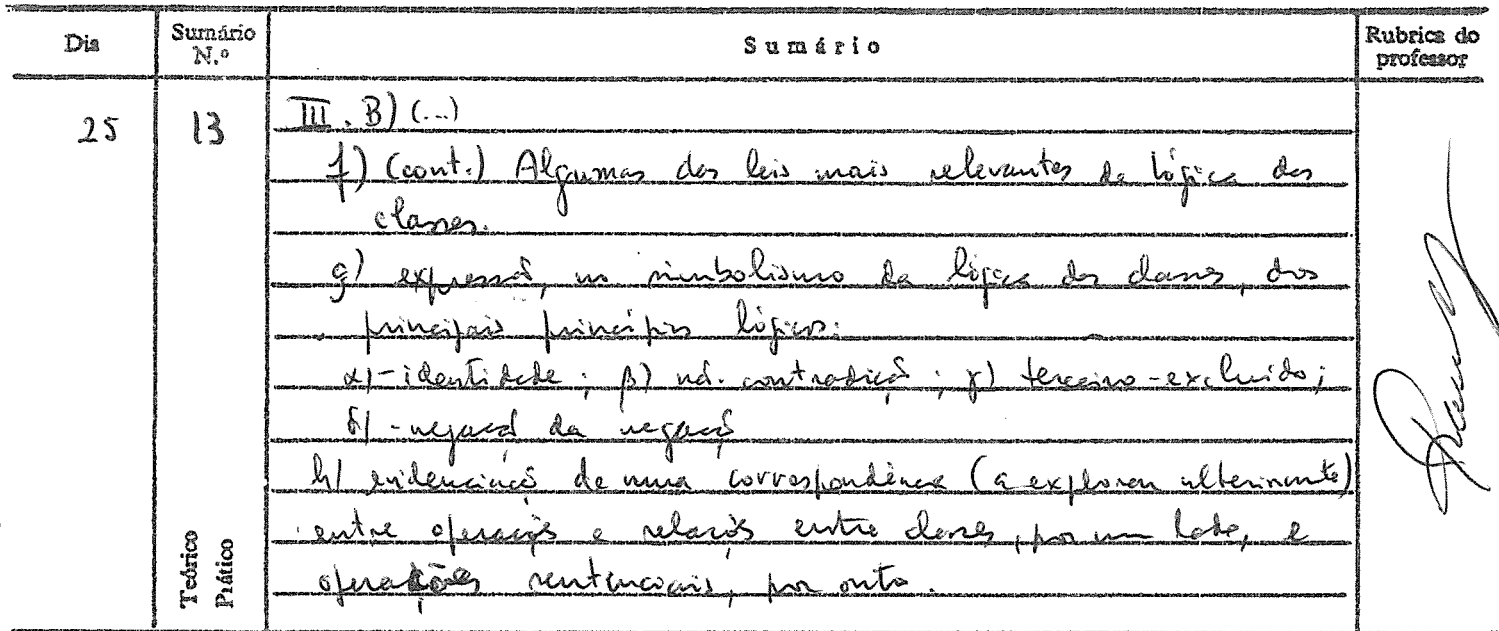 Dia
Sumário N.º
Sumário
Rubrica do professor
25
13
III. B) (...)
f) (cont.) Algumas das leis mais relevantes da lógica das
classes.
g) expressão, no simbolismo da lógica das classes, dos
principais princípios lógicos:
α) - identidade ; β) não-contradição ; γ) terceiro-excluído ;
δ) - negação da negação
h) evidenciação de uma correspondência (a explorar ulteriormente)
entre operações e relações entre classes, por um lado, e
operações sentenciais, por outro.
Teórico
Prático